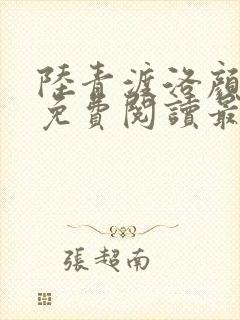 陸青渡洛顏
免費閱讀最
張超南